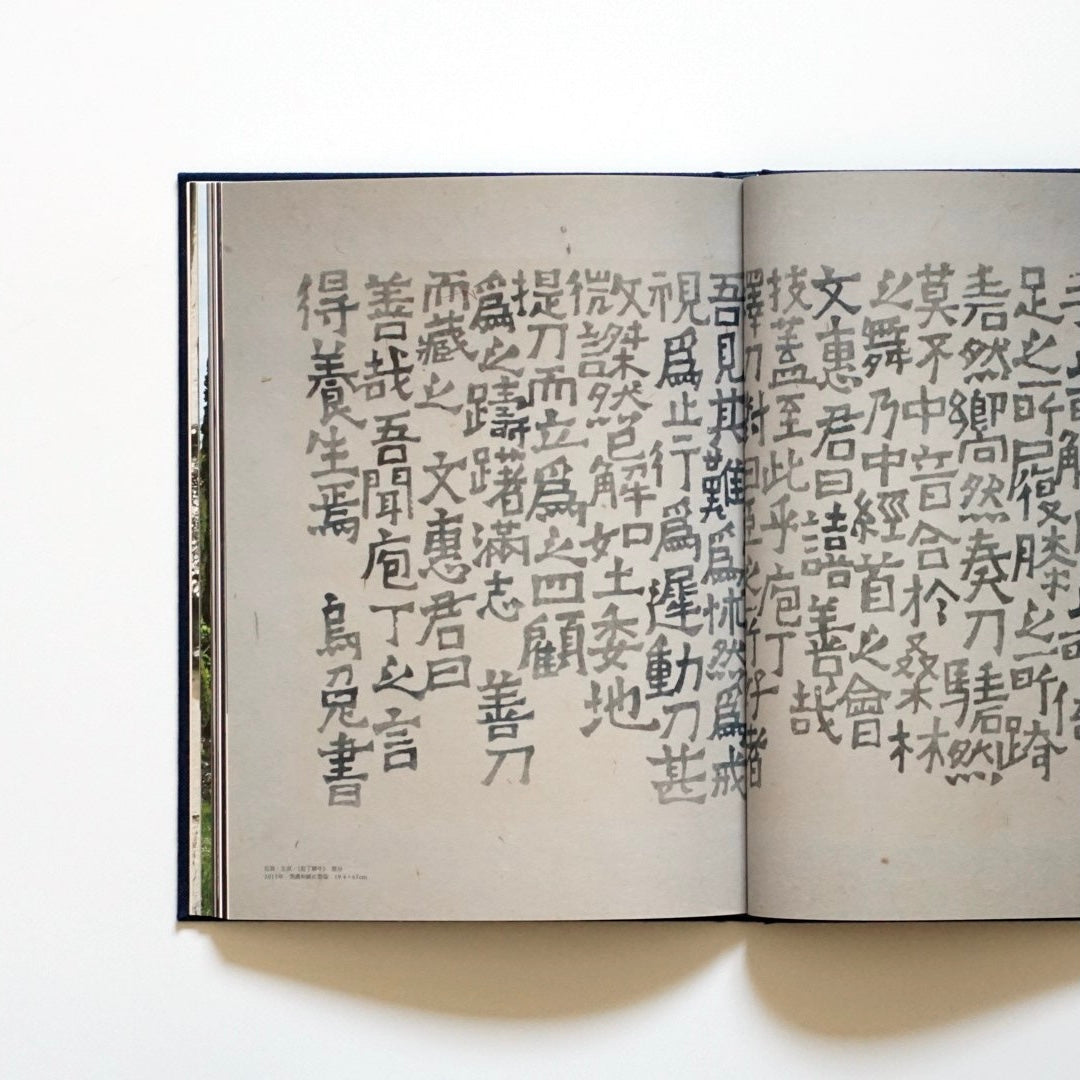 足之所履膝之所踦
砉然嚮然奏刀騞然
莫不中音合於桑林
之舞乃中經首之會
文惠君曰譆善哉
技蓋至此乎庖丁
釋刀對曰臣之所好者
吾見其難爲怵然爲戒
視爲止行爲遲動刀甚
微謋然已解如土委地
提刀而立爲之四顧
爲之躊躇滿志 善刀
而藏之 文惠君曰
善哉吾聞庖丁之言
得養生焉 書